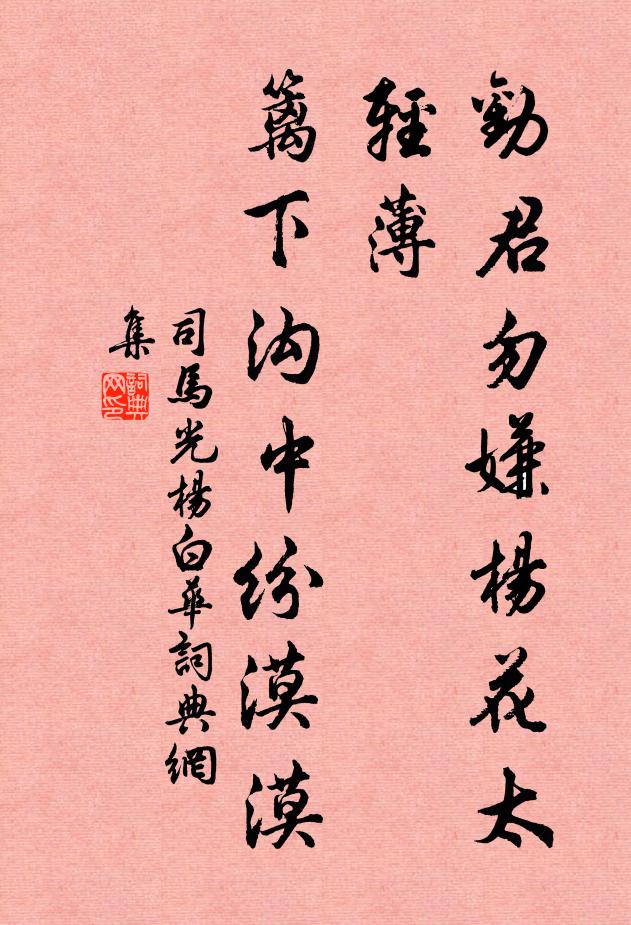 勸君勿嫌楊花太
輕薄
籬下沟中紛漠漠
司馬光楊白華詞典網
集
詞典
网印